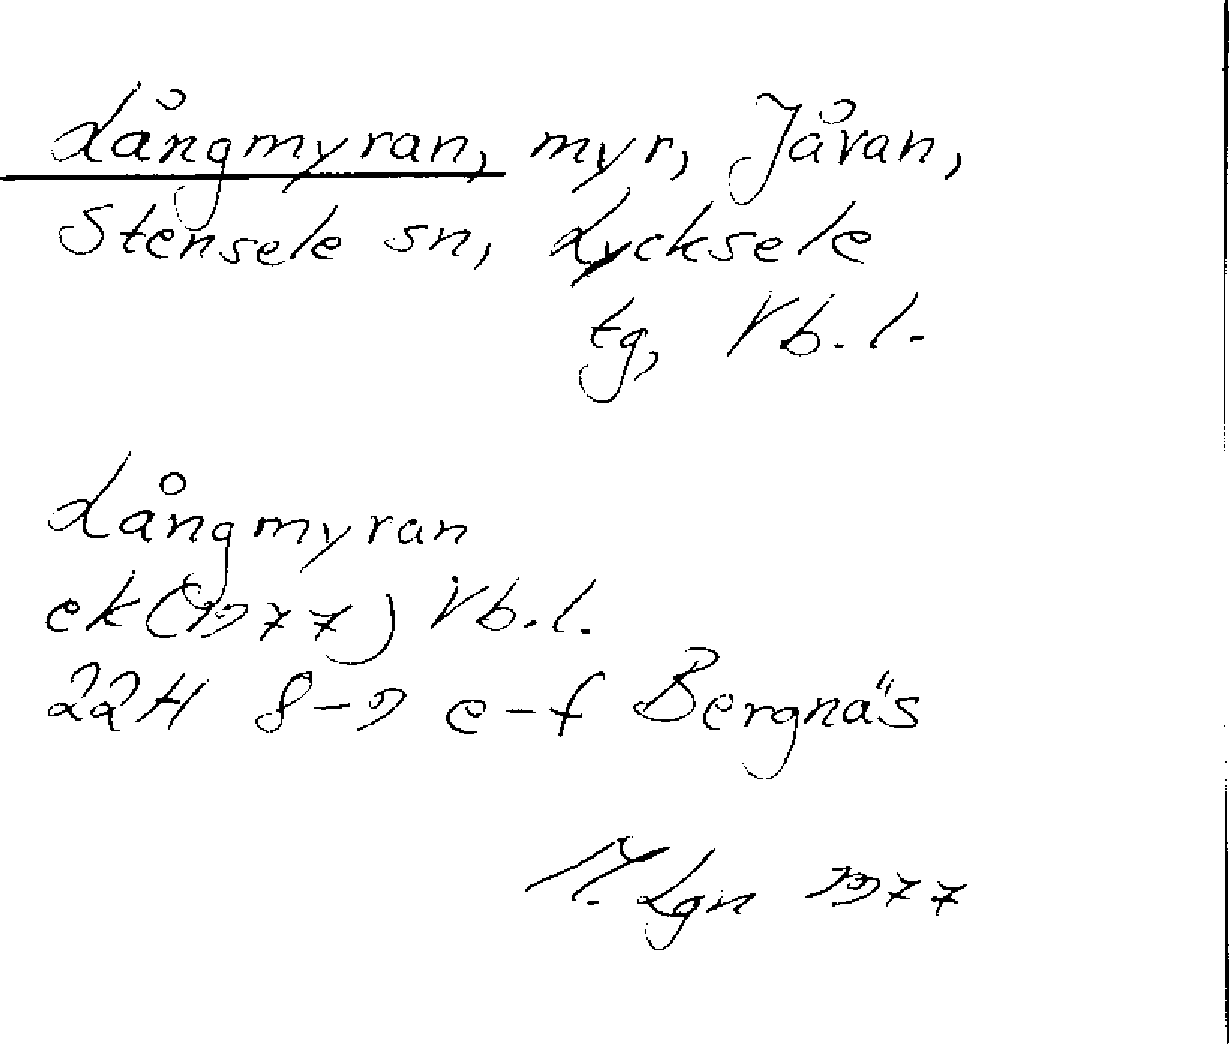 Långmyran, myr, Jåvan,
Stensele sn, Lycksele
tg, Vb.l.
Långmyran
ek(1977) Vb.l.
22H 8-9 e-f Bergnäs
Lgn 1977